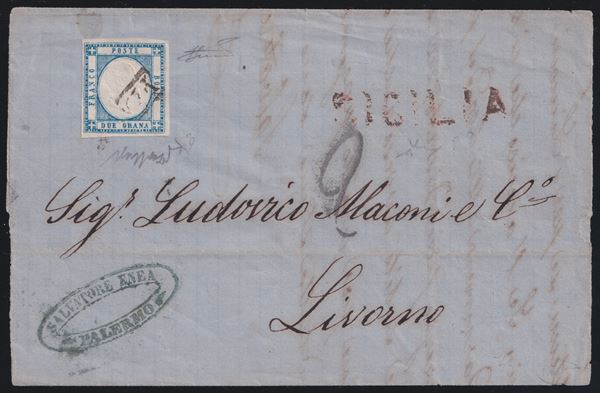 POSTE
FRANCO
BOLLO
DUE GRANA
SICILIA
2
Sigr. Ludovico Maconi e Co.
Livorno
SALVATORE ENEA
PALERMO